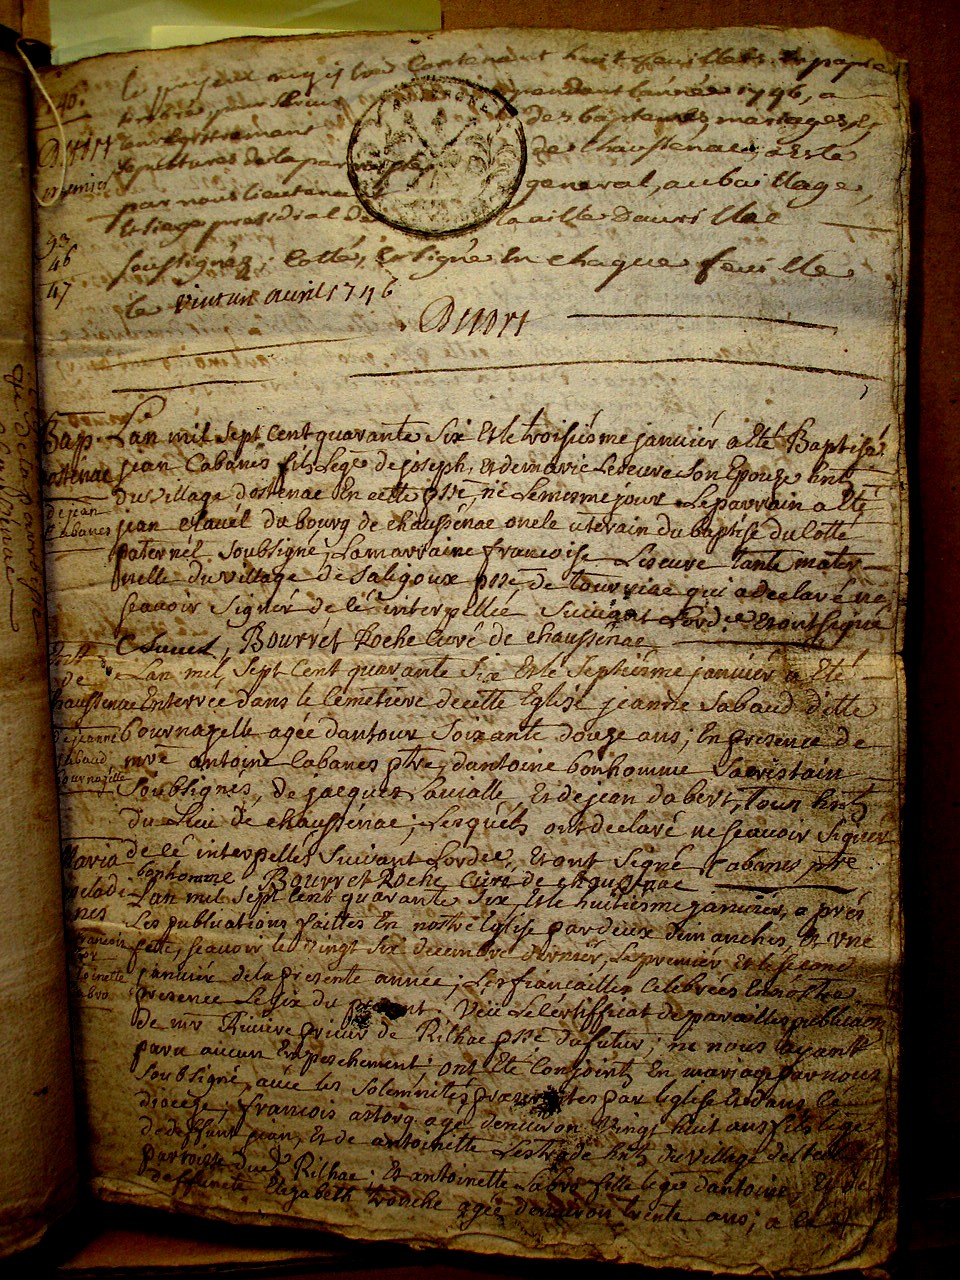 le present registre contenant huit feuillets papier
timbré pour servir pendant l'année 1746, a
l'enregistrement des baptemes, mariages, et
sepultures de la parroisse de chaussenac, a esté
par nous lieutenant general, au bailliage,
et siege presidial de la ville d'aurillac
soussignez; cotté, et signé en chaque feuille
le vintun avril 1746
1746.
93
46
47
Bapt.
d'ostenac
de jean
Cabanes
Lan mil sept cent quarante six et le troisiesme janviér a eté Baptisé
jean Cabanes fils legé de joseph, et de marie Leseuve son Epouze hnts
du village dostenac En cette psse, né le mesme jour Le parrain a eté
jean du bourg de chaussénac oncle uterain du baptisé du cotté
paternél soubsigné, La marraine francoise Leseuve tante mater-
nelle du village de saligoux psse de tourniac qui a declaré ne
scavoir signér de cé interpellée suivant Lordce Et ont signé
Bourrét Roche Curé de chaussénac
de
chaussenac
de jeanne
sabaud
bournazelle
Lan mil sept cent quarante six et le septiésme janviér a eté
Enterrée dans le cemetiére de cette Eglisé jeanne sabaud ditte
bournazelle agée dantour soixante douze ans; En presence de
mre antoine Cabanes ptre, dantoine bonhomme sacristain
soubsignés, de jacques Et de jean dabert, tous hnts
du Lieu de chaussénac; Lesquéls ont declaré ne scavoir signér
de cé interpellés suivant Lordce, Et ont signé Cabanes ptre
bonhomme Bourret Roche Curé de chaussénac
Maria
francois
antoinette
Labro
Lan mil sept cent quarante six, et le huitiesme janviér, a prés
Les publications faittes En nostre Eglise par deux dimanches, et une
fette, scavoir le vingt six decembre dernier, Le premiér et le second
janviér de la presente année; Les fiancailles celebrées En nostre
presence Le six du present. Veu Le certifficat de pareilles publicaons
de mr Riviére prieur de Rilhac psse du futur; ne nous ayant
paru aucun Empeschement ont eté conjoints En mariage par nous
soubsigné, avec les solemnités prescrittes par Leglise Et dans le
diocése; francois astorg agé denviron vingt huit ans fils lege
de deffunt jean, Et de antoinette Lestrade hnts du village
parroisse dud Rilhac; Et antoinette Labro fille lege dantoine, Et de
deffunte Elizabeth tronche agée denviron trente ans;